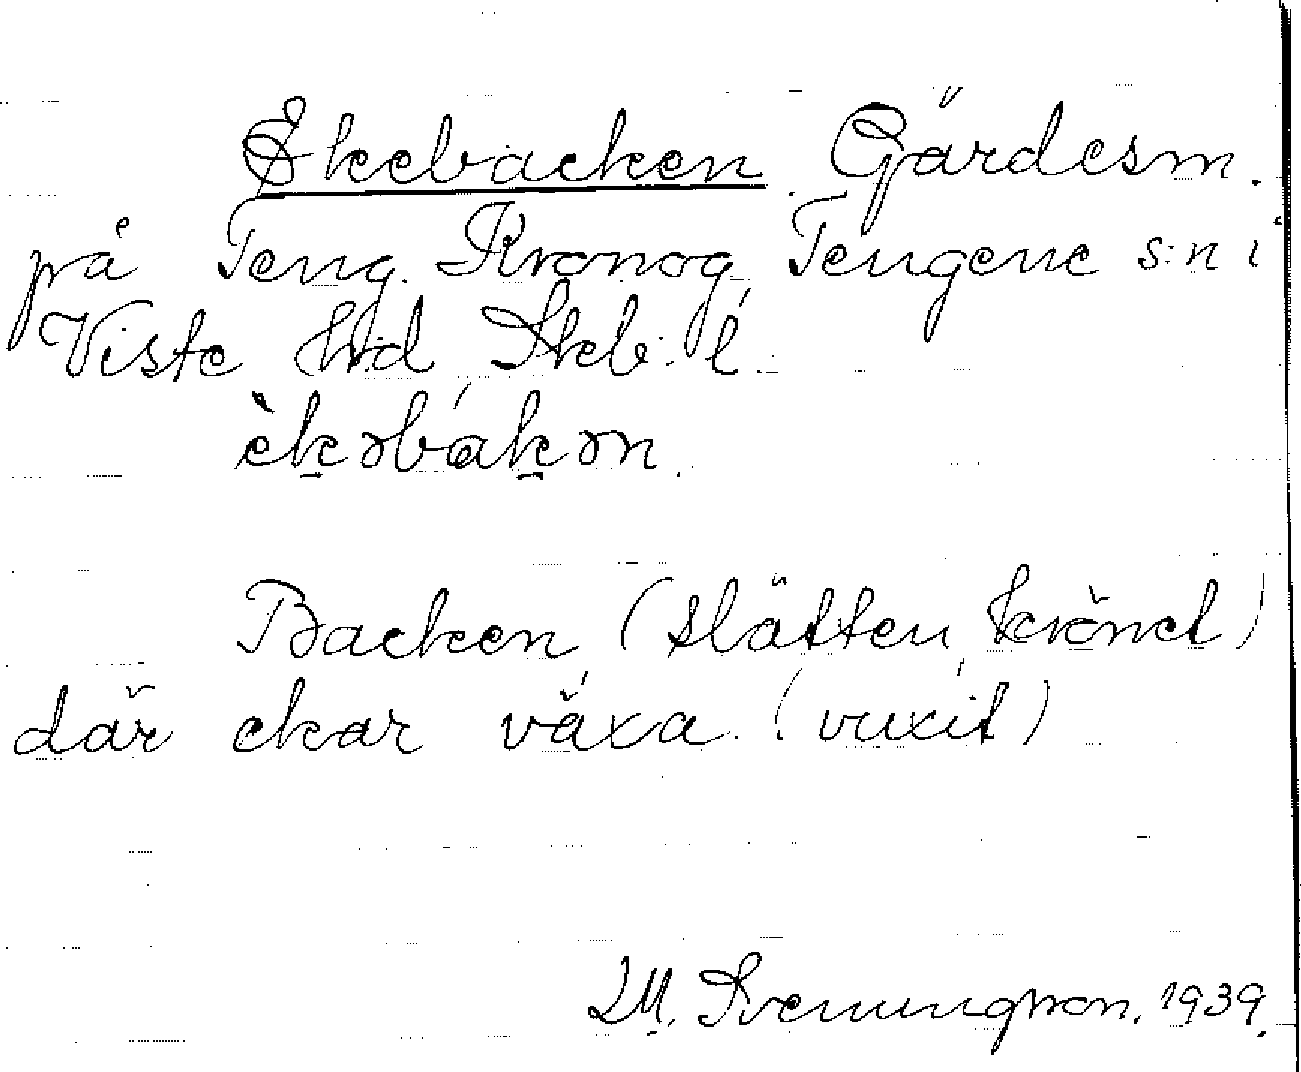 Ekebacken Gärdesm.
på Teng. Kronog. Tengene s:n i
Viste hd Skab. l.
èkəbákən.
Backen (slätten, krönet)
där ekar växa. (vuxit)
M. Svenungsson. 1939.